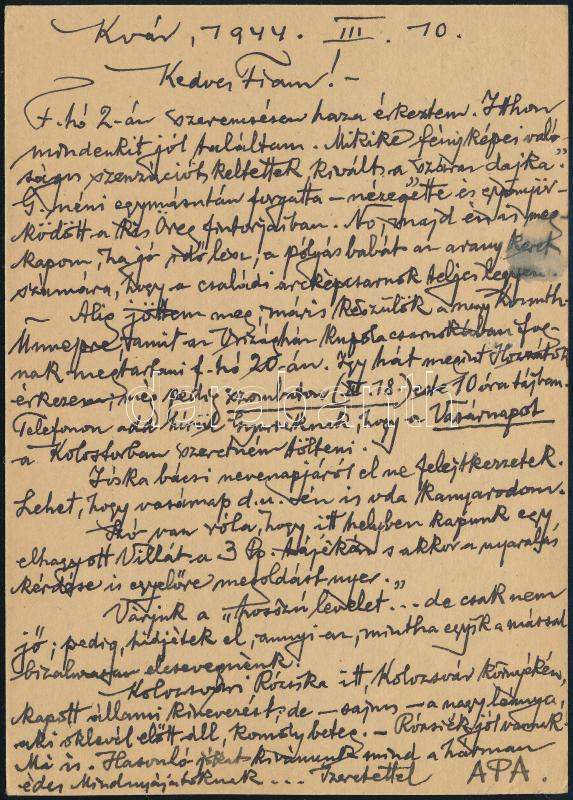 Kvár, 1944. III. 10.
Kedves Fiam! -
F. hó 2-án szerencsésen haza érkeztem. Itthon
mindenkit jól találtam. Mikike fényképei való-
ságos szenzációt keltettek, kivált a "száraz dajka".
G. néni egymásután forgatta - nézegette és gyönyör-
ködött a Kis Öreg fintorjaiban. No, majd én is meg-
kapom, ha jó idő lesz, a pólyásbabát az arany keret
számára, hogy a családi arcképcsarnok teljes legyen.
- Alig jöttem meg, máris készülök a nagy Kossuth-
Ünnepre, amit az Országház kupolacsarnokában fog-
nak megtartani f. hó 20-án. Így hát megint Hozzátok
érkezem, még pedig szombaton (III. 18.) este 10 óra tájban.
Telefonon add hírül, hogy a Vasárnapot
a Kolostorban szeretném tölteni.
Jóska bácsi nevenapjáról el ne felejtkezzetek.
Lehet, hogy vasárnap d.u. én is oda kanyarodom.
Szó van róla, hogy itt helyben kapunk egy
elhagyott Villát a 3 táján s akkor a nyaralás
kérdése is egyelőre megoldást nyer.
Várjuk a "hosszú levelet"... de csak nem
jő, pedig, higyjétek el, annyi az, mintha egyik a mással
bizalmasan elcsevegnénk.
Kolozsvári Rózsika itt, Kolozsvár környékén,
kapott állami kinevezést, de - sajnos - a nagy leánya,
aki oklevél előtt áll, komoly beteg. - Rózsiék jól vannak.
Mi is. Hasonló jókat kívánunk mind a hatan
édes Mindnyájatoknak... Szeretettel APA.
darabanth